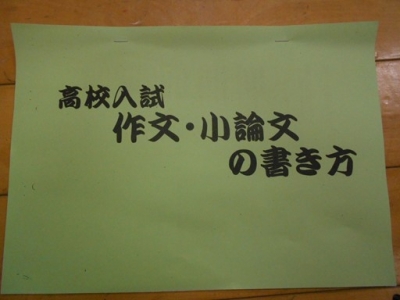 高校入試
作文・小論文
の書き方